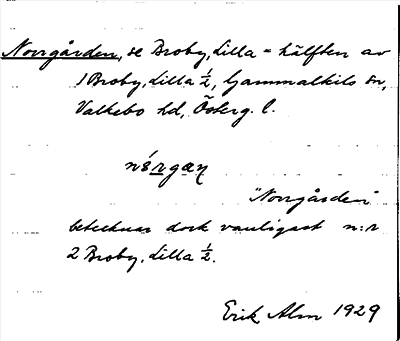 Norrgården, se Broby, Lilla = hälften av
1 Broby, Lilla ½, Gammalkils sn,
Valkebo hd, Österg. l.
nórgæn
"Norrgården"
betecknar dock vanligast n:r
2 Broby, Lilla ½.
Erik Alm 1929